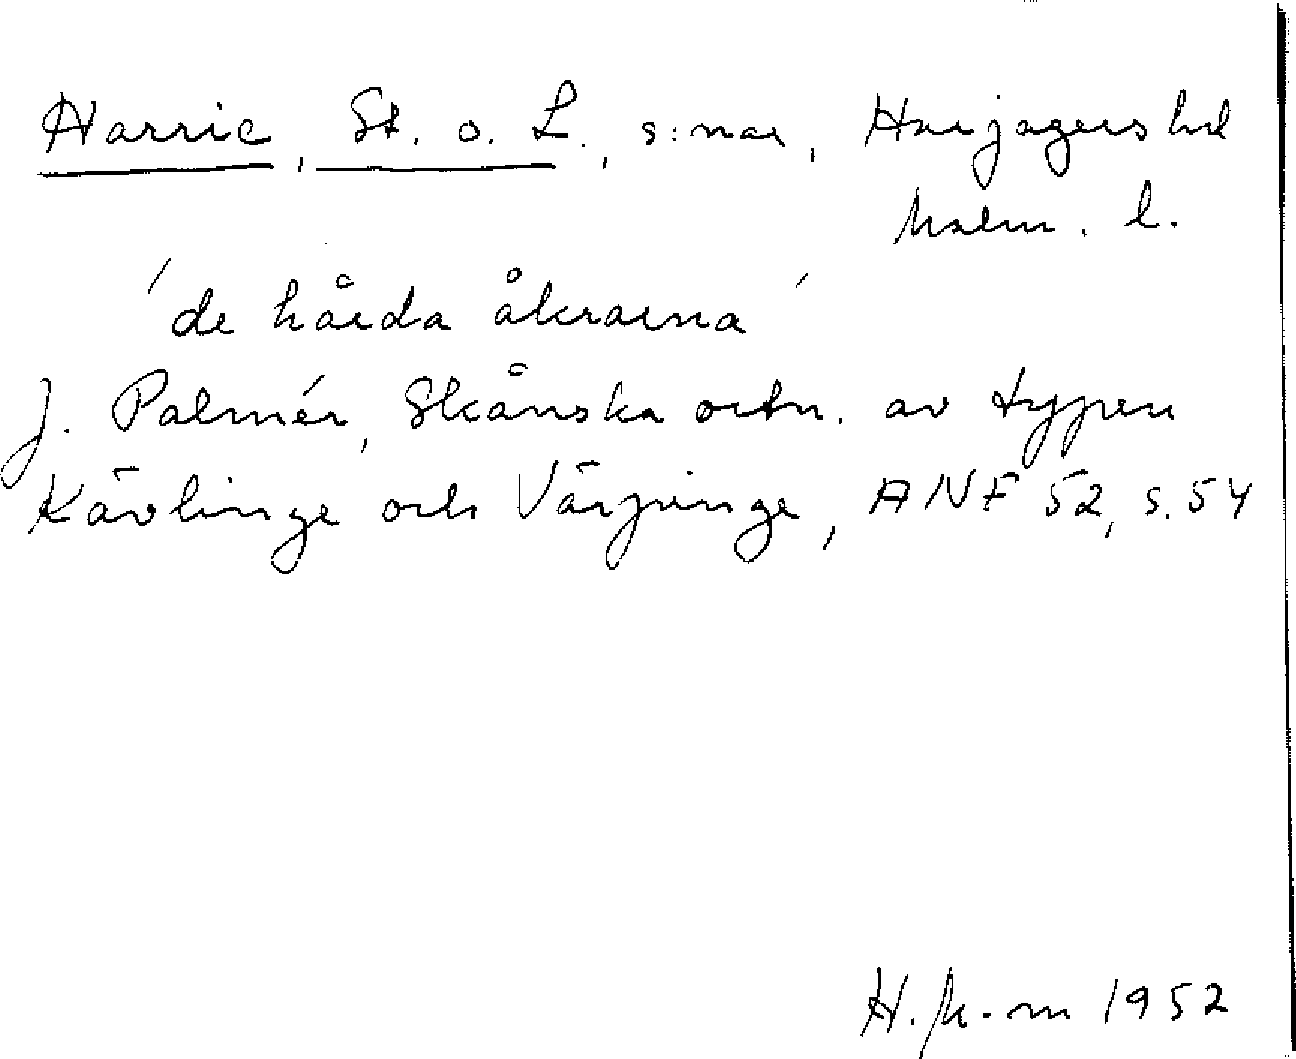 Harrie, St. o. L., s:nar, Harjagers hd
Malm. l.
'de hårda åkrarna'
J. Palmér, Skånska ortn. av typen
Kävlinge och Värpinge, ANF 52, s. 54
H. M-m 1952